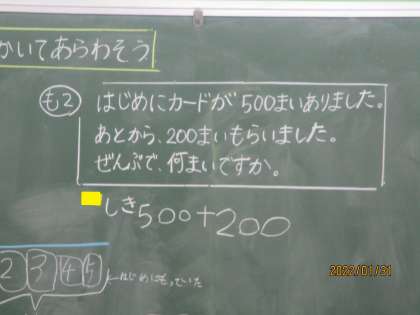 かいてあらわそう
も2
はじめにカードが500まいありました。
あとから、200まいもらいました。
ぜんぶで、何まいですか。
しき500+200
2 3 4 5
←はじめにもっていた
2022/01/31